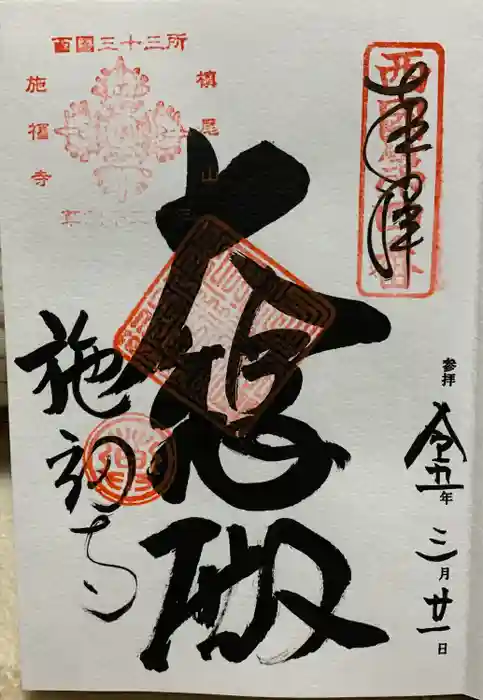 西國三十三所
槙尾山
施福寺
奉拝
西國第四番
参拝
令五年
三月廿一日
大悲殿
施福寺